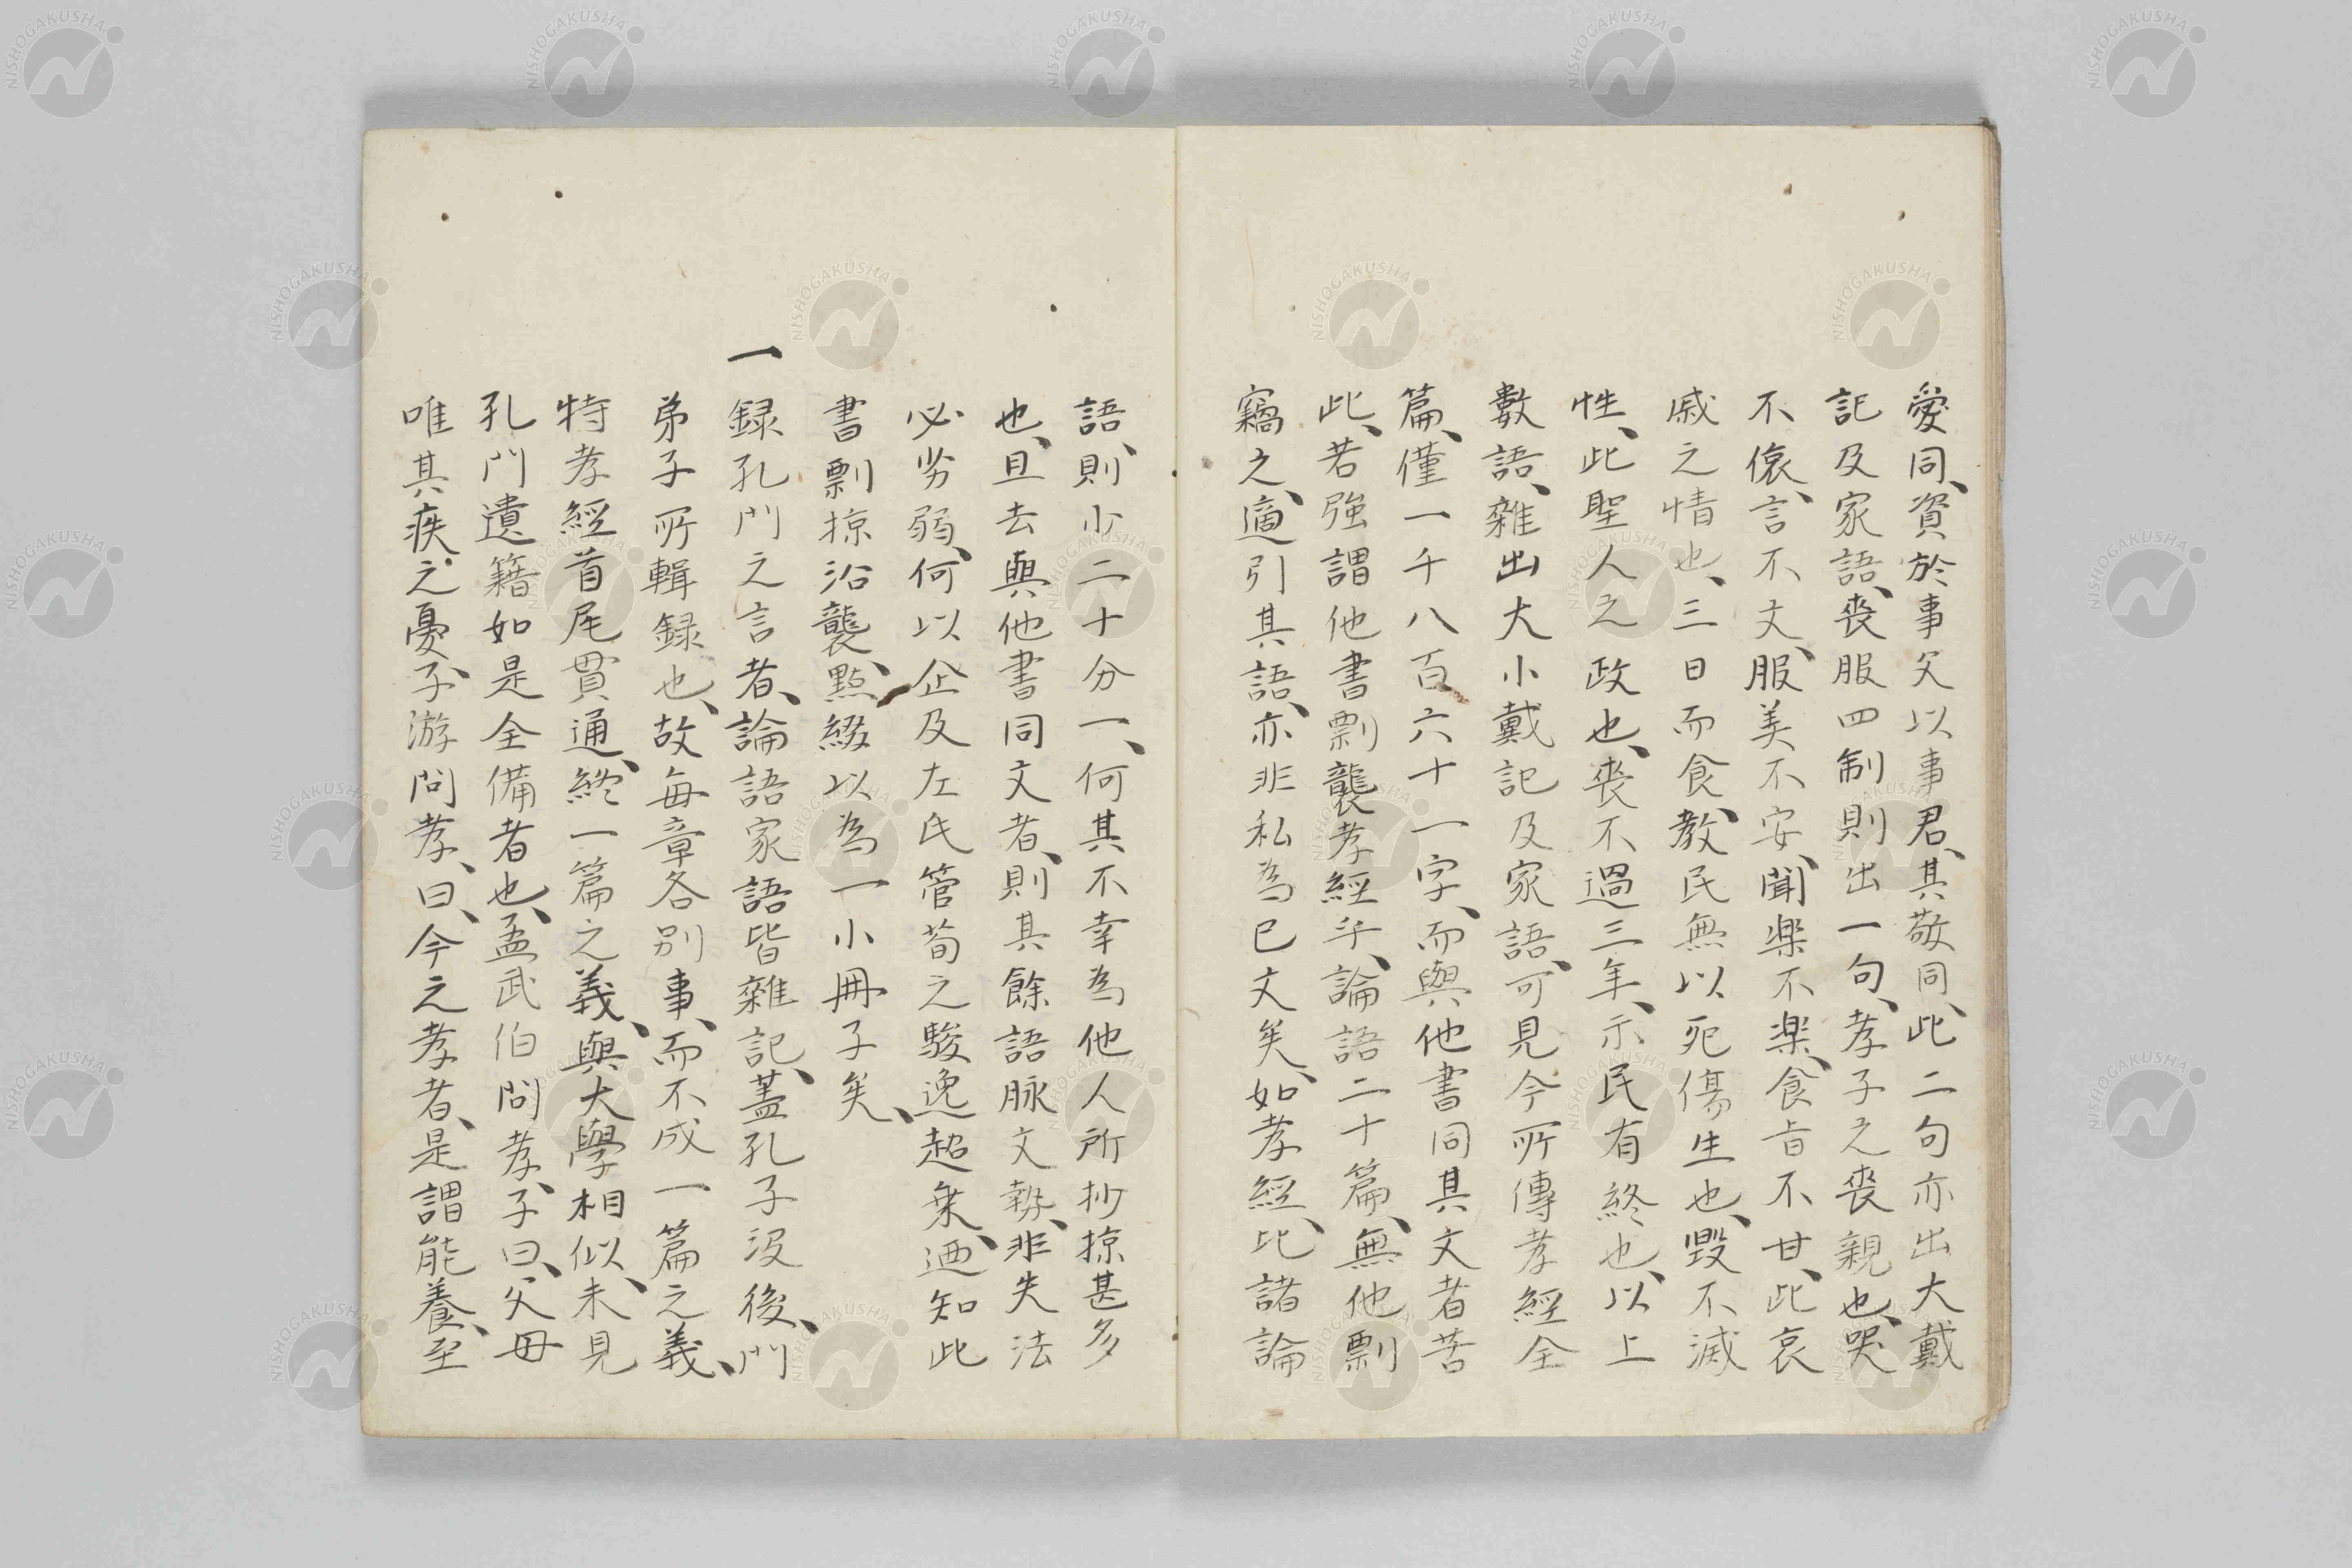 愛同、資於事父以事君、其敬同、此二句亦出大戴
記及家語、喪服四制則出一句、孝子之喪親也、哭
不偯、言不文、服美不安、聞楽不楽、食旨不甘、此哀
戚之情也、三日而食、教民無以死傷生也、毀不滅
性、此聖人之政也、喪不過三年、示民有終也、以上
數語、雜出大小戴記及家語、可見今所傳孝經全
篇、僅一千八百六十一字、而與他書同其文者若
此、若強謂他書剽襲孝經乎、論語二十篇、無他剽
竊之、適引其語、亦非私為已文矣、如孝經、比諸論
語、則少二十分一、何其不幸為他人所抄掠甚多
也、且去與他書同文者、則其餘語脉文勢、非失法
必劣弱、何以企及左氏管荀之駿逸超乗、迺知此
書剽掠沿襲、點綴以為一小冊子矣、
一録孔門之言者、論語家語皆雜記、蓋孔子没後、門
弟子所輯録也、故每章各別事、而不成一篇之義、
特孝經首尾貫通、終一篇之義、與大學相似、未見
孔門遺籍如是全備者也、孟武伯問孝、子曰、父母
唯其疾之憂、子游問孝、曰、今之孝者、是謂能養、至
NISHOGAKUSHA